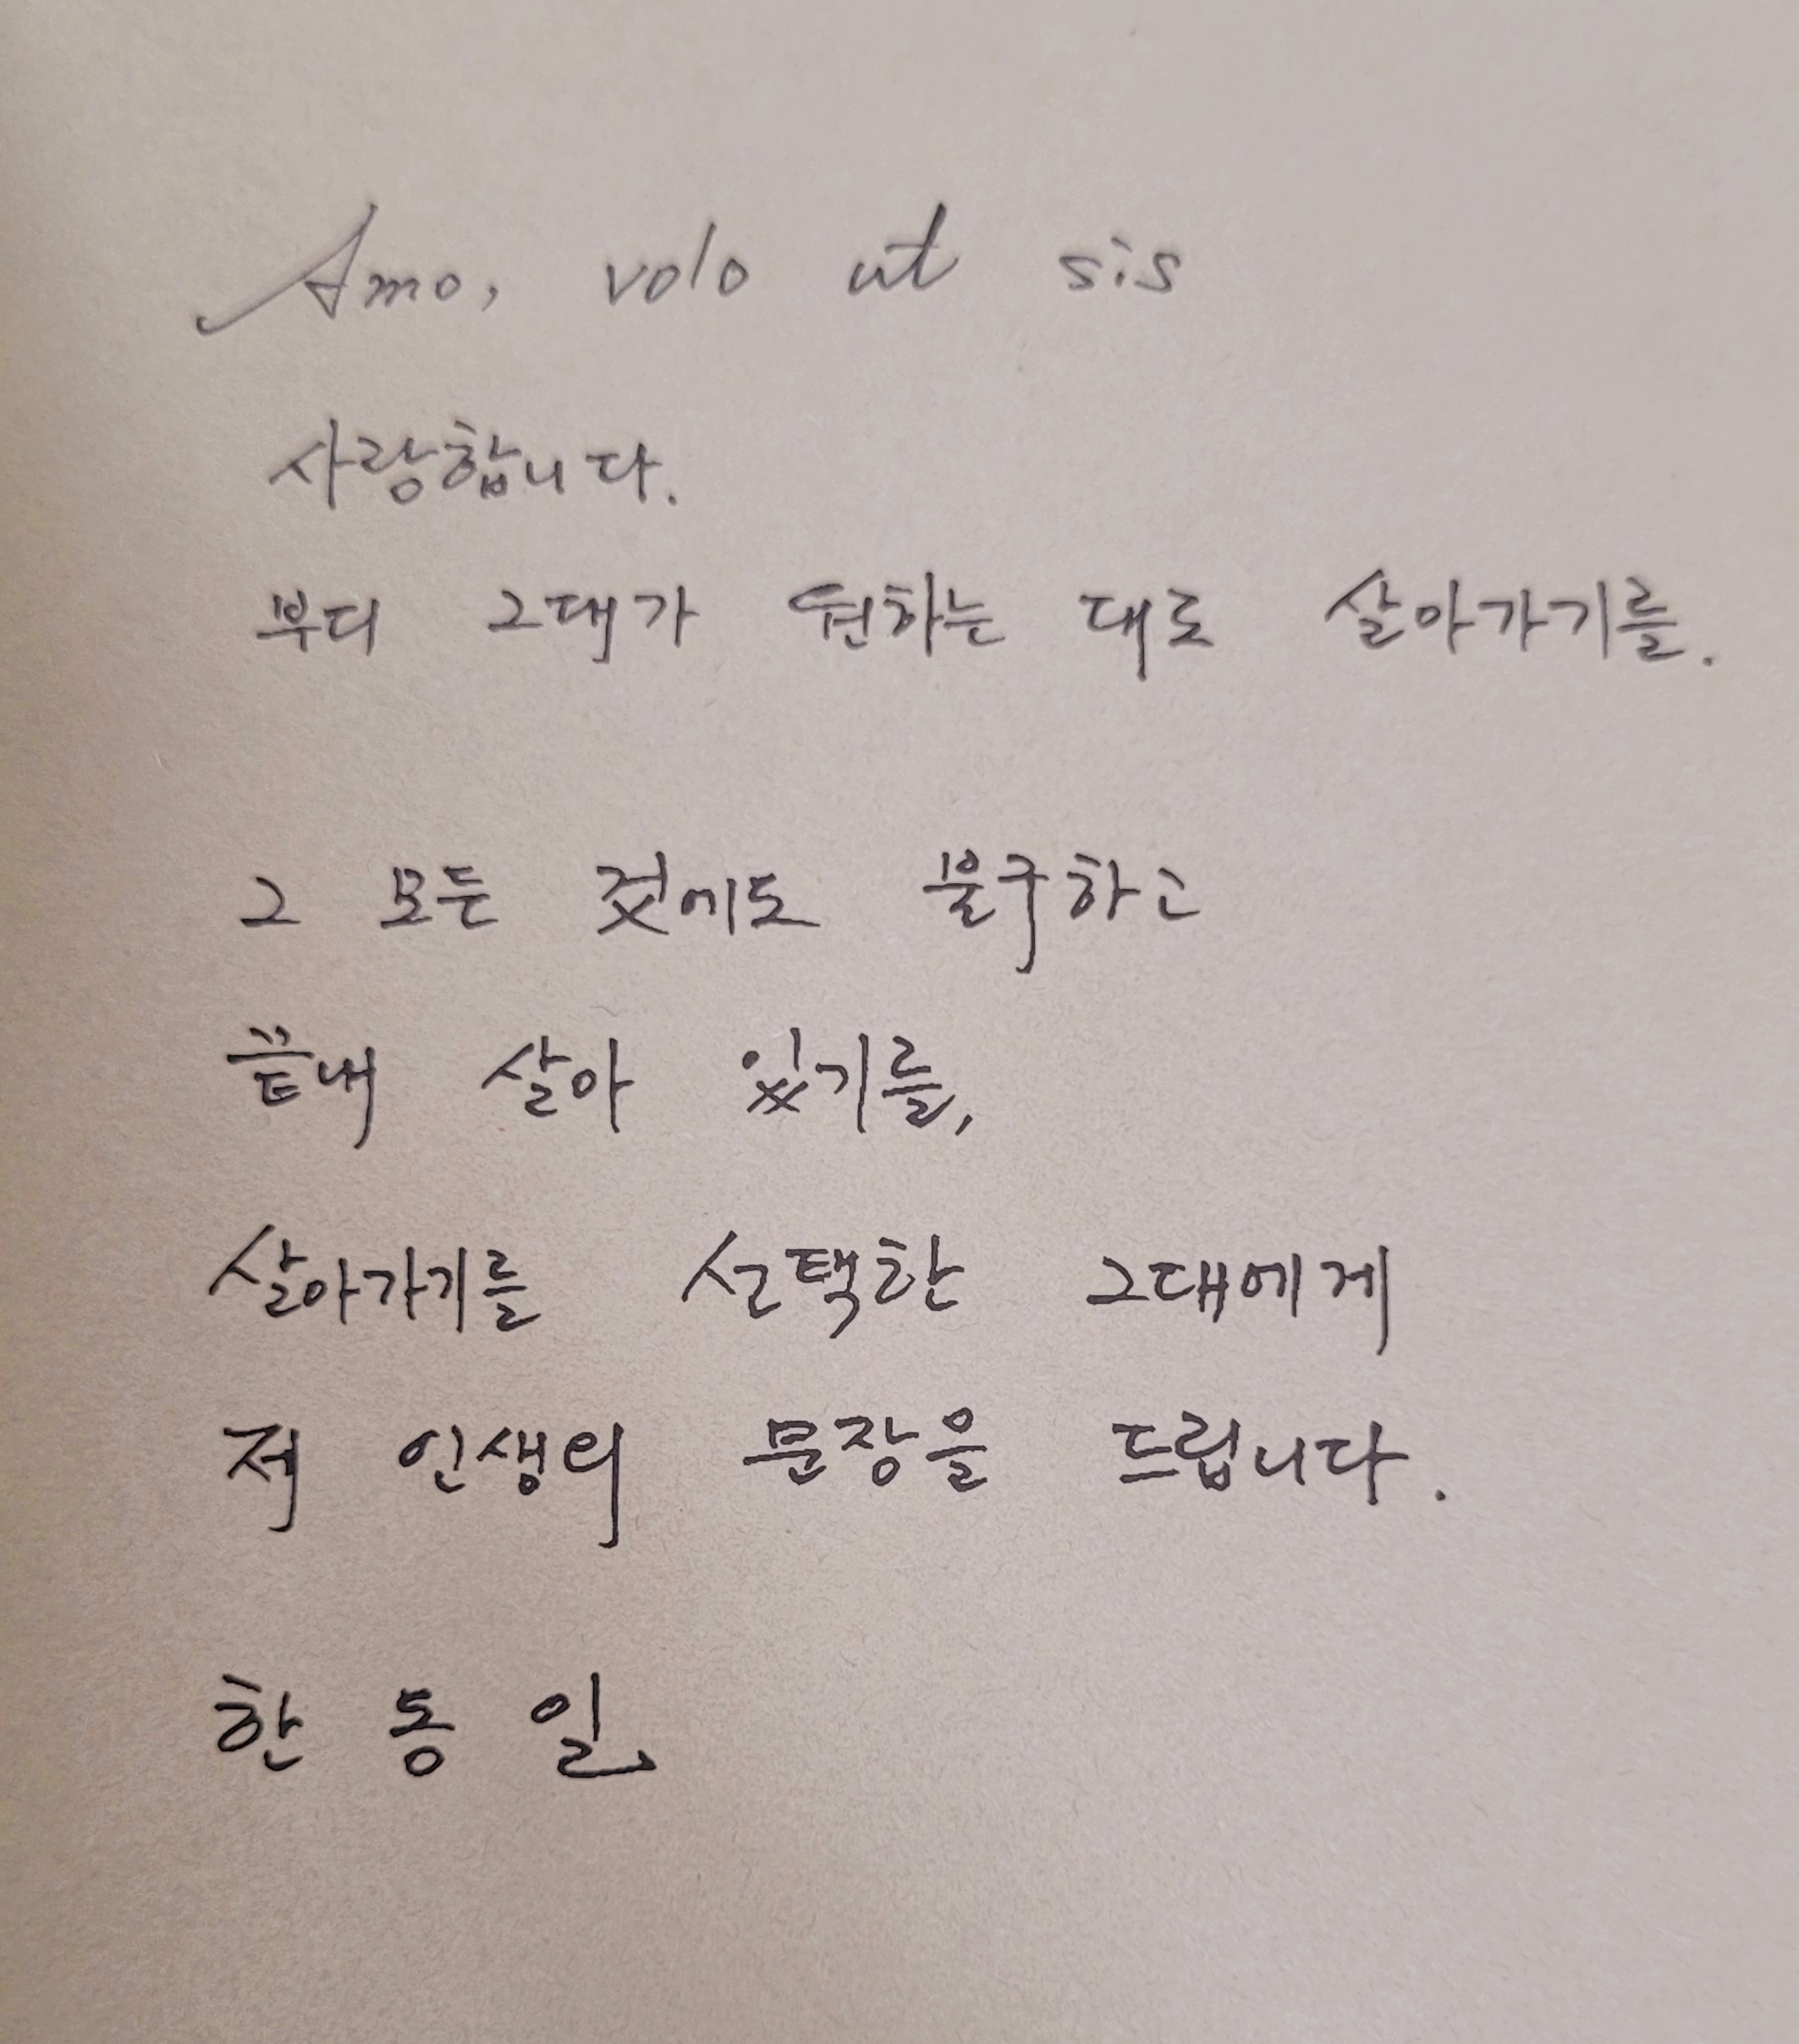 Amo, volo ut sis
사랑합니다.
부디 그대가 원하는 대로 살아가기를.
그 모든 것에도 불구하고
끝내 살아 있기를,
살아가기를 선택한 그대에게
저 인생의 문장을 드립니다.
한동일